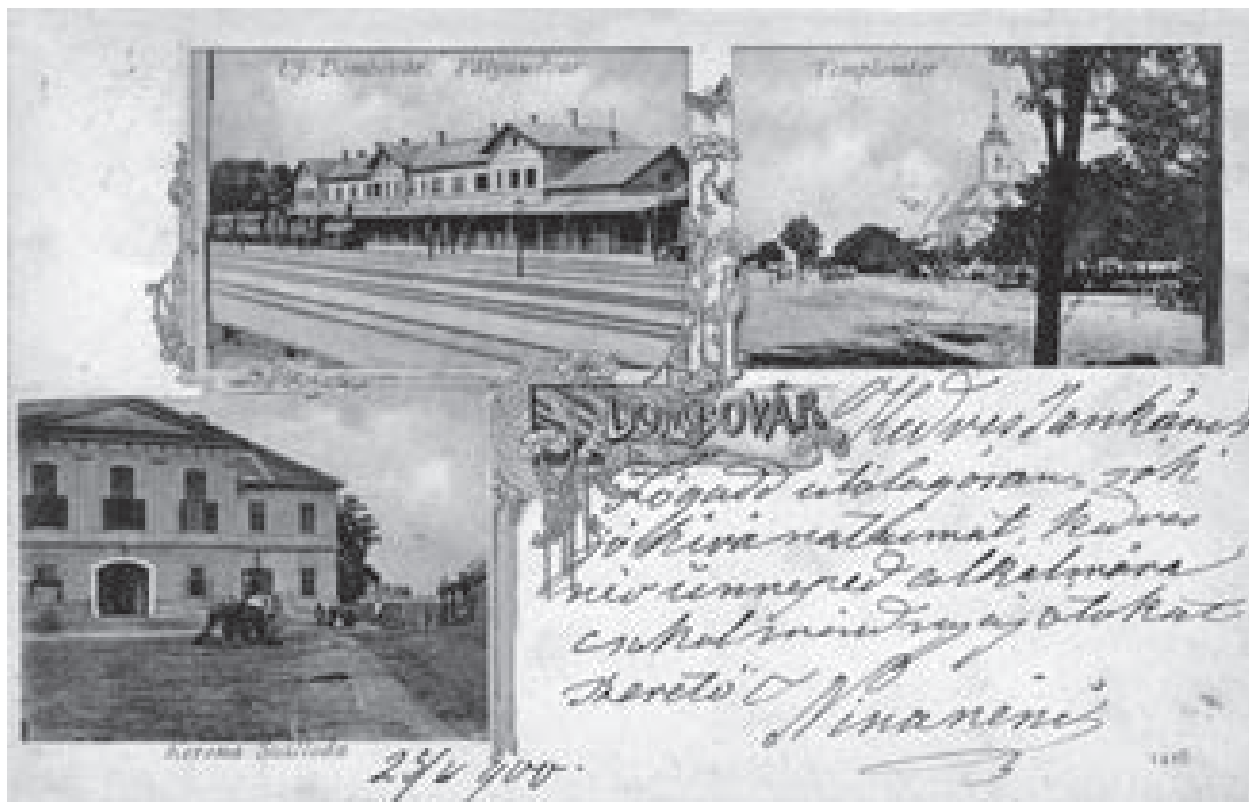 Uj-Dombovár. Pályaudvar
Templomtér
DOMBOVÁR
Kedves
Fogadd utólagosan sok
jó kivánataimat, kedves
név ünneped alkalmára
csókol mindnyájotokat
szerető
Ninaneni
Korona Szálloda
900.